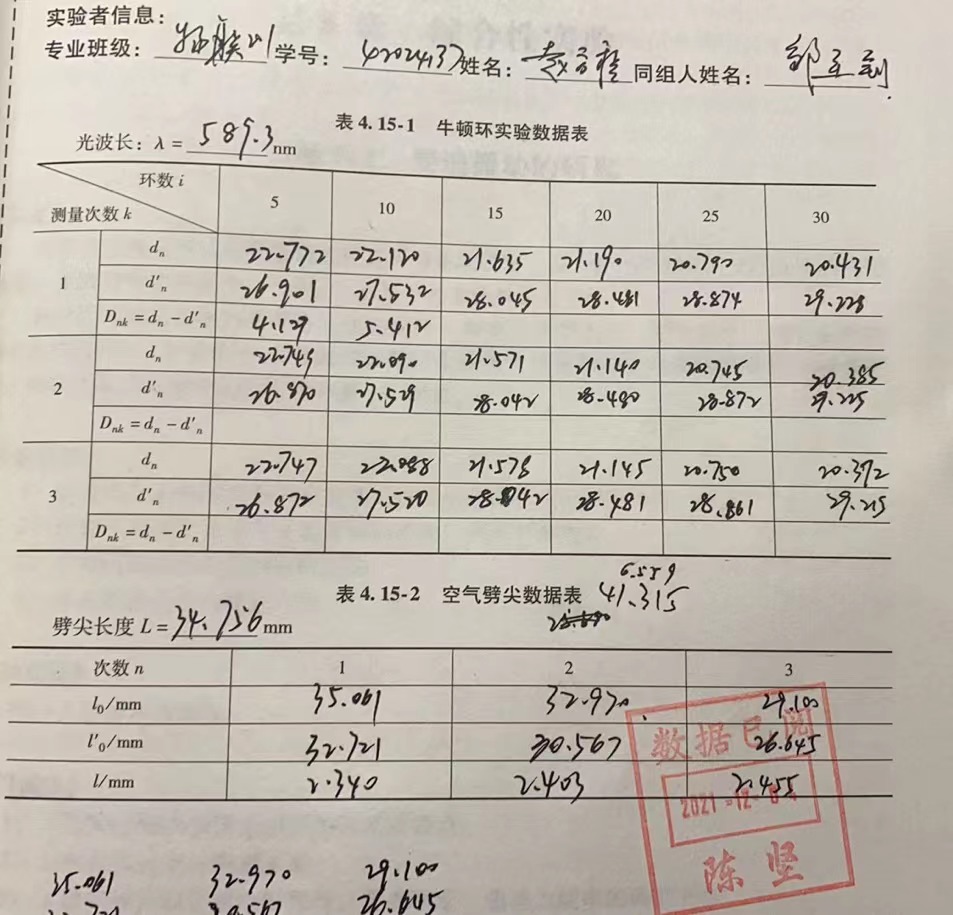 实验者信息:
专业班级: 学号: 姓名: 同组人姓名:
表 4.15-1 牛顿环实验数据表
光波长: λ = 589.3 nm
环数 i 5 10 15 20 25 30
测量次数 k
1
dn 22.772 22.120 21.635 21.190 20.790 20.431
d'n 26.901 27.532 28.045 28.481 28.874 29.228
Dnk = dn - d'n 4.129 5.412
2
dn 22.745 22.090 21.571 21.140 20.745 20.385
d'n 26.870 27.529 28.042 28.480 28.872 29.225
Dnk = dn - d'n
3
dn 22.747 22.088 21.578 21.145 20.750 20.372
d'n 26.872 27.520 28.042 28.481 28.861 29.215
Dnk = dn - d'n
6.559
表 4.15-2 空气劈尖数据表 41.315
劈尖长度 L = 34.756 mm
次数 n 1 2 3
l0/mm 35.061 32.970 29.100
l'0/mm 32.721 30.567 26.645
l/mm 2.340 2.403 2.455
数据已阅
2021-12-
陈坚
35.061 32.970 29.100
30.567 26.645